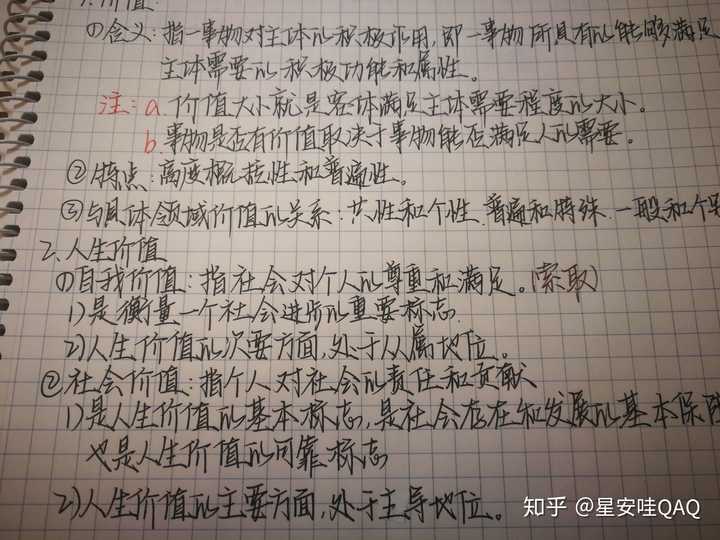 1.价值
①含义:指一事物对主体的积极作用,即一事物所具有的能够满足
主体需要的积极功能和属性。
注:a.价值大小就是客体满足主体需要程度的大小。
b事物是否有价值取决于事物能否满足人的需要。
②特点:高度概括性和普遍性。
③与具体领域价值的关系:共性和个性.普遍和特殊.一般和个别
2.人生价值
①自我价值:指社会对个人的尊重和满足。(索取)
1)是衡量一个社会进步的重要标志.
2)人生价值的次要方面,处于从属地位。
②社会价值:指个人对社会的责任和贡献
1)是人生价值的基本标志,是社会存在和发展的基本保障
也是人生价值的可靠标志
2)人生价值的主要方面,处于主导地位。
知乎 @星安哇QAQ